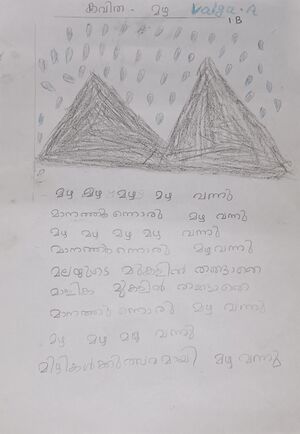 കവിത - മഴ Valga. A
1B
മഴ മഴ മഴ മഴ വന്നു
മാനത്തുന്നൊരു മഴ വന്നു
മഴ മഴ മഴ മഴ വന്നു
മാനത്തുന്നൊരു മഴ വന്നു
മലയുടെ മുകളിൽ തങ്ങാതെ
മാളിക മുകളിൽ തങ്ങാതെ
മാനത്തുന്നൊരു മഴ വന്നു
മഴ മഴ മഴ വന്നു
മിഴികൾക്കുത്സവമായി മഴ വന്നു